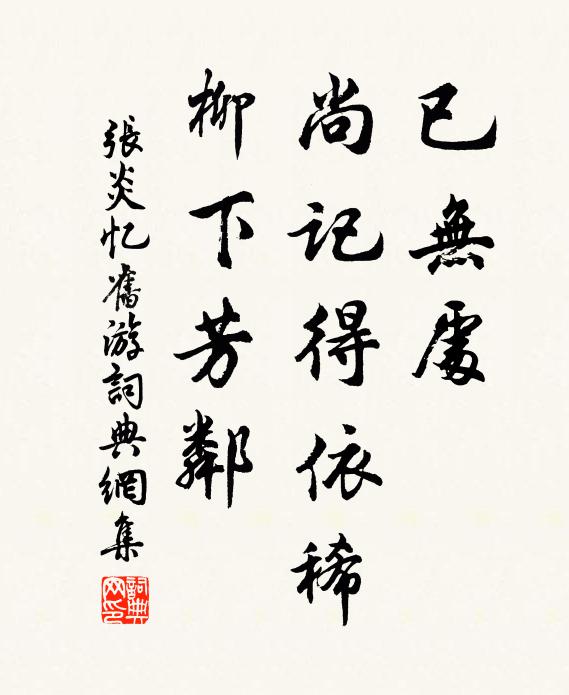 已無處
尚記得依稀
柳下芳鄰
張炎忆舊游詞典網集
詞典网印